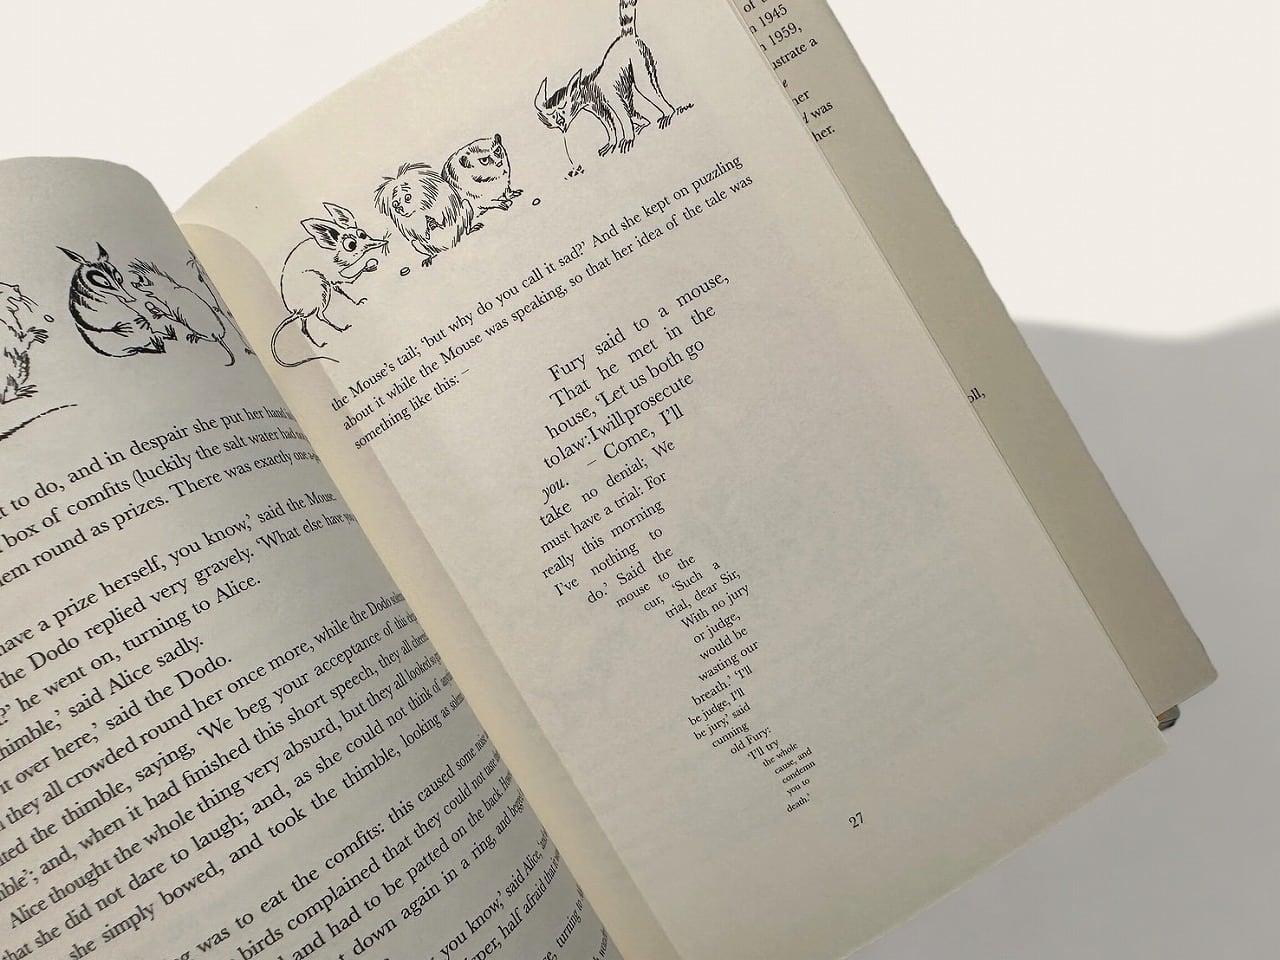 t to do, and in despair she put her hand
box of comfits (luckily the salt water had
em round as prizes. There was exactly one
have a prize herself, you know,’ said the Mouse.
the Dodo replied very gravely. ‘What else have you
?’ he went on, turning to Alice.
himble,’ said Alice sadly.
it over here,’ said the Dodo.
they all crowded round her once more, while the Dodo
ted the thimble, saying, ‘We beg your acceptance of this
ble’; and, when it had finished this short speech, they all
Alice thought the whole thing very absurd, but they all looked so
that she did not dare to laugh; and, as she could not think of
she simply bowed, and took the thimble, looking as
was to eat the comfits: this caused some
birds complained that they could not taste
and had to be patted on the back.
t down again in a ring, and
you know,’ said Alice,
half afraid that
turning to
Tove
the Mouse’s tail; ‘but why do you call it sad?’ And she kept on puzzling
about it while the Mouse was speaking, so that her idea of the tale was
something like this: –
Fury said to a mouse,
That he met in the
house, ‘Let us both go
to law: I will prosecute
you. – Come, I’ll
take no denial; We
must have a trial: For
really this morning
I’ve nothing to
do.’ Said the
mouse to the
cur, ‘Such a
trial, dear Sir,
With no jury
or judge,
would be
wasting our
breath.’ ‘I’ll
be judge, I’ll
be jury,’ said
cunning
old Fury:
‘I’ll try
the whole
cause, and
condemn
you to
death.’
27
1945
1959,
ustrate a
her
was
her.